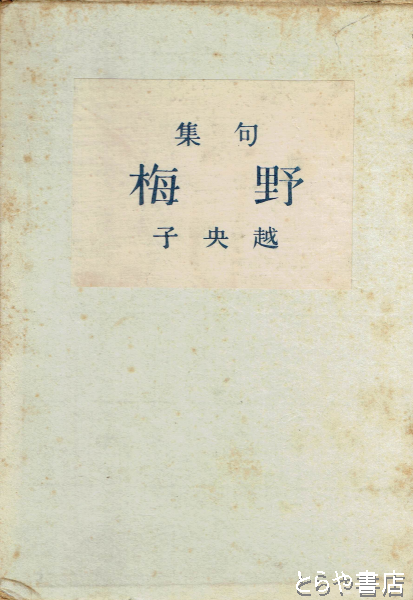 句集
野梅
越央子
とらや書店